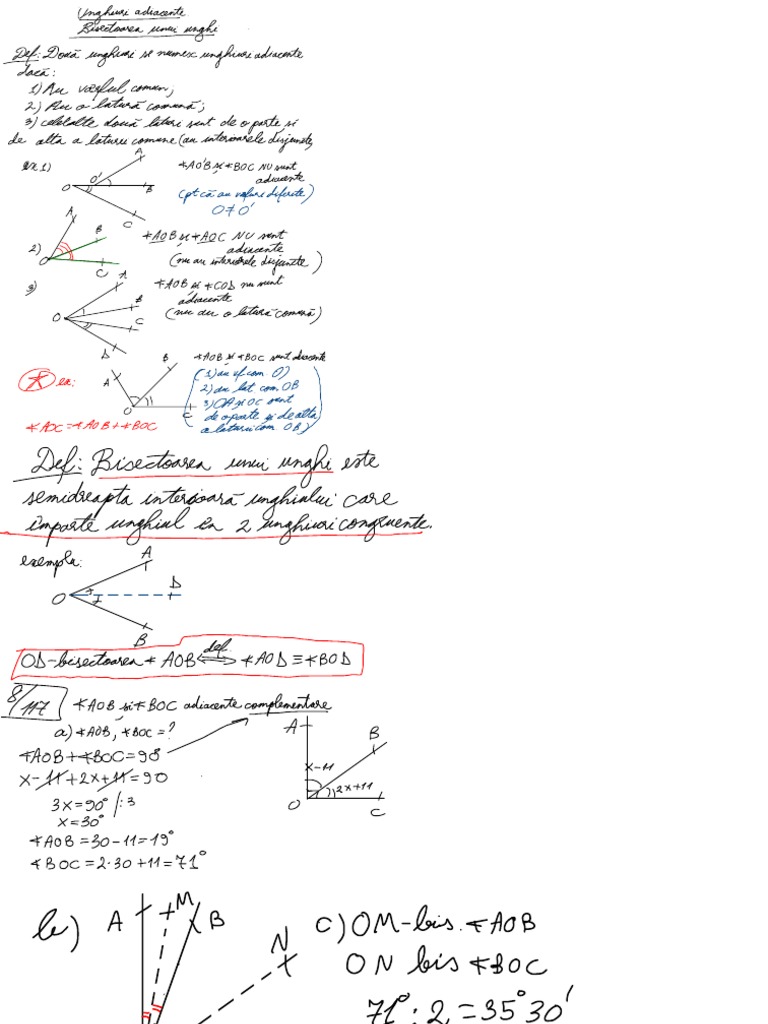 Unghiuri adiacente
Bisectoarea unui unghi
Def: Două unghiuri se numesc unghiuri adiacente
dacă:
1) Au vârful comun;
2) Au o latură comună;
3) celelalte două laturi sunt de o parte și
de alta a laturii comune (au interioarele disjuncte)
ex 1)
A
O'
O
B
C
∢AO'B și ∢BOC NU sunt
adiacente
(pt că au vârfuri diferite)
O≠O'
2)
A
B
O
C
∢AOB și ∢AOC NU sunt
adiacente
(nu au interioarele disjuncte)
3)
A
B
O
C
D
∢AOB și ∢COD nu sunt
adiacente
(nu au o latură comună)
* ex:
A
B
O
C
∢AOB și ∢BOC sunt adiacente
(1) au vf com O)
2) au lat com OB
3) OA și OC sunt
de o parte și de alta
a laturii com OB)
∢AOC=∢AOB+∢BOC
Def: Bisectoarea unui unghi este
semidreapta interioară unghiului care
împarte unghiul în 2 unghiuri congruente.
exemplu:
A
D
O
B
OD-bisectoarea ∢AOB <=def=> ∢AOD≡∢BOD
8/117
∢AOB și ∢BOC adiacente complementare
a) ∢AOB, ∢BOC=?
∢AOB+∢BOC=90°
x-11+2x+11=90
3x=90° /:3
x=30°
∢AOB=30-11=19°
∢BOC=2·30+11=71°
A
B
x-11
2x+11
O
C
b)
A
M
B
N
c) OM-bis. ∢AOB
ON bis ∢BOC
71°:2=35°30'